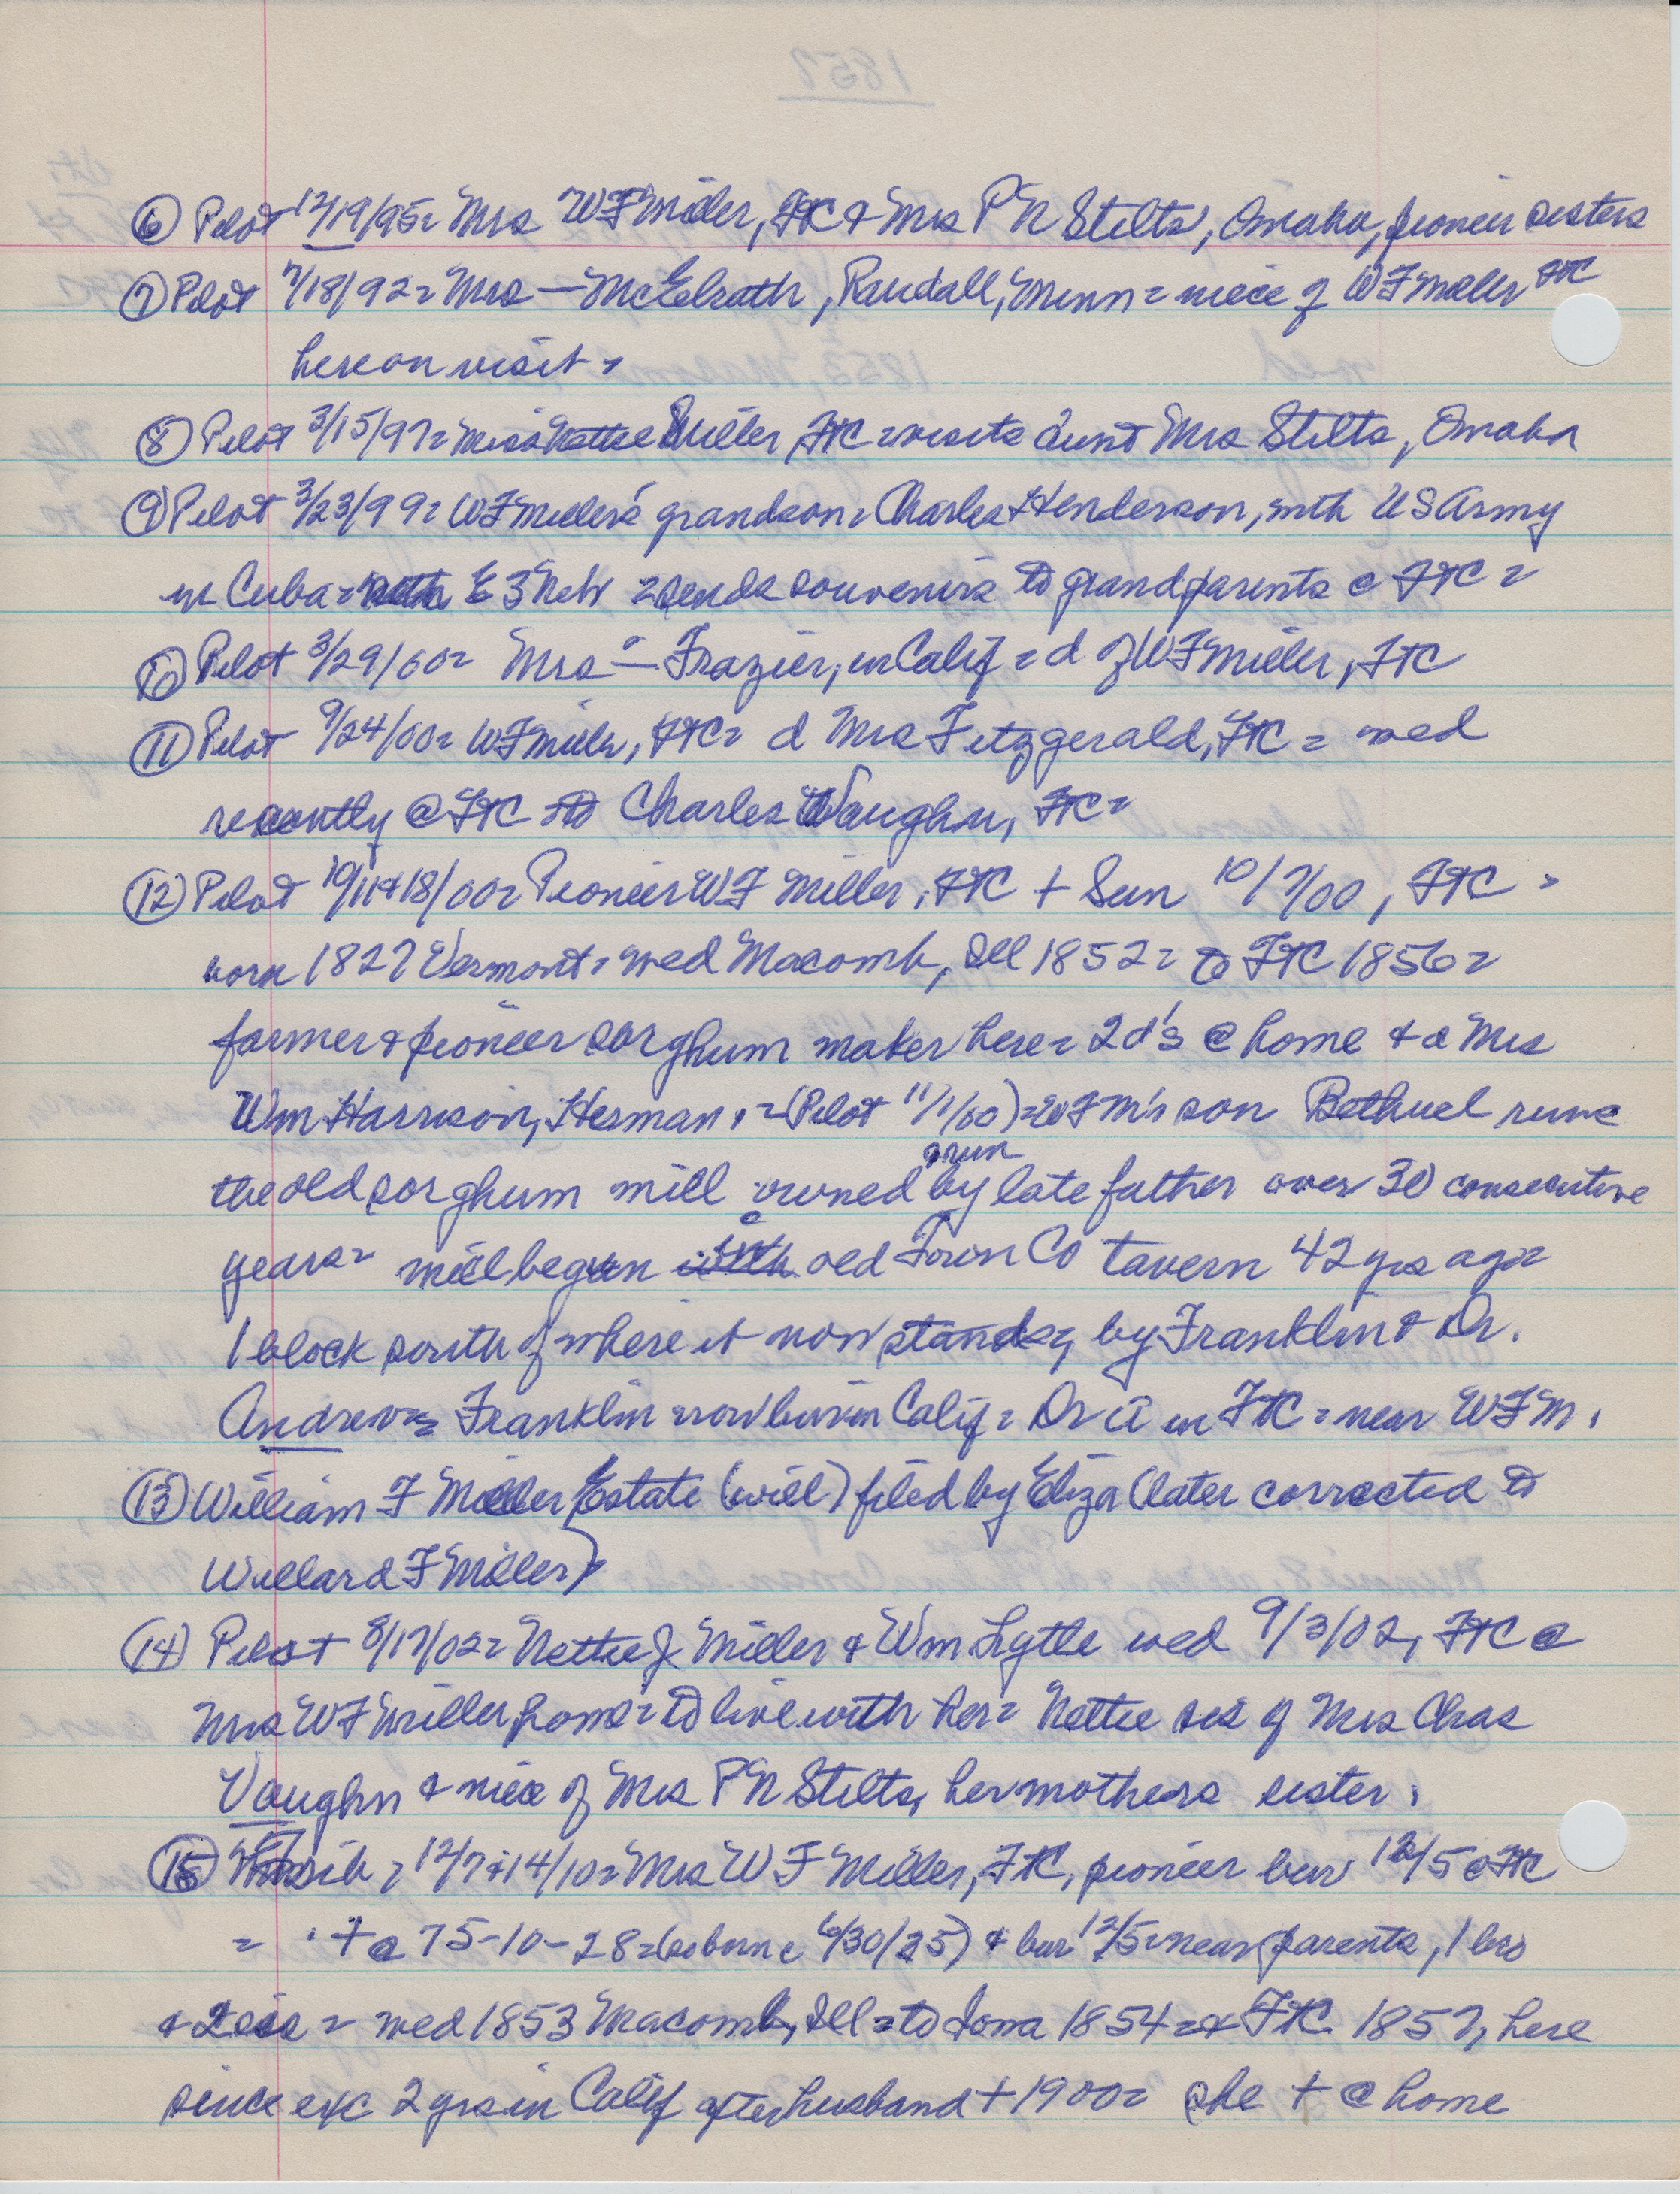 ⑥ Pilot 12/19/95 = Mrs W F Miller, FTC & Mrs P N Stilts, Omaha, pioneer sisters
⑦ Pilot 7/18/92 = Mrs — McElrath, Randall, Minn = niece of W F Miller FTC
here on visit.
⑧ Pilot 3/15/97 = Miss Nettie Miller, FTC = visits aunt Mrs Stilts, Omaha
⑨ Pilot 3/23/99 = W F Miller's grandson = Charles Henderson, with US Army
in Cuba = E 3 Neb = sends souvenirs to grandparents @ FTC =
⑩ Pilot 3/29/00 = Mrs — Frazier, in Calif = d of W F Miller, FTC
⑪ Pilot 9/24/00 = W F Miller, FTC = d Mrs Fitzgerald, FTC = wed
recently @ FTC to Charles Vaughn, FTC =
⑫ Pilot 10/11 & 18/00 = Pioneer W F Miller, FTC + Sun 10/7/00, FTC =
born 1827 Vermont = wed Macomb, Ill 1852 = to FTC 1856 =
farmer & pioneer sorghum maker here = 2 d's @ home & a Mrs
Wm Harrison, Herman. = (Pilot 11/1/00) = W F M's son Bethuel runs
the old sorghum mill owned by late father over 30 consecutive
& run
years = mill begun in old Town Co tavern 42 yrs ago =
1 block south of where it now stands, by Franklin & Dr.
Andrews = Franklin now bur in Calif = Dr A in FTC = near W F M.
⑬ William F Miller Estate (will) filed by Eliza (later corrected to
Willard F Miller)
⑭ Pilot 8/17/02 = Nettie J Miller & Wm Lytle wed 9/3/02, FTC @
Mrs W F Miller home = to live with her = Nettie sis of Mrs Chas
Vaughn & niece of Mrs P N Stilts, her mothers sister.
⑮ 12/7 & 14/10 = Mrs W F Miller, FTC, pioneer bur 12/5 @ FTC
= + @ 75-10-28 = (so born c 6/30/35) & bur 12/5 = near parents, 1 bro
& 2 sis = wed 1853 Macomb, Ill = to Iowa 1854 = & FTC 1857, here
since exc 2 yrs in Calif after husband + 1900 = she + @ home